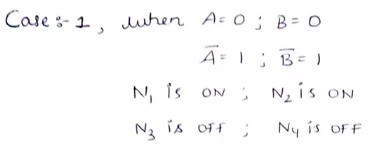 Case :- 1, when A = 0 ; B = 0
A̅ = 1 ; B̅ = 1
N₁ is ON ; N₂ is ON
N₃ is OFF ; N₄ is OFF